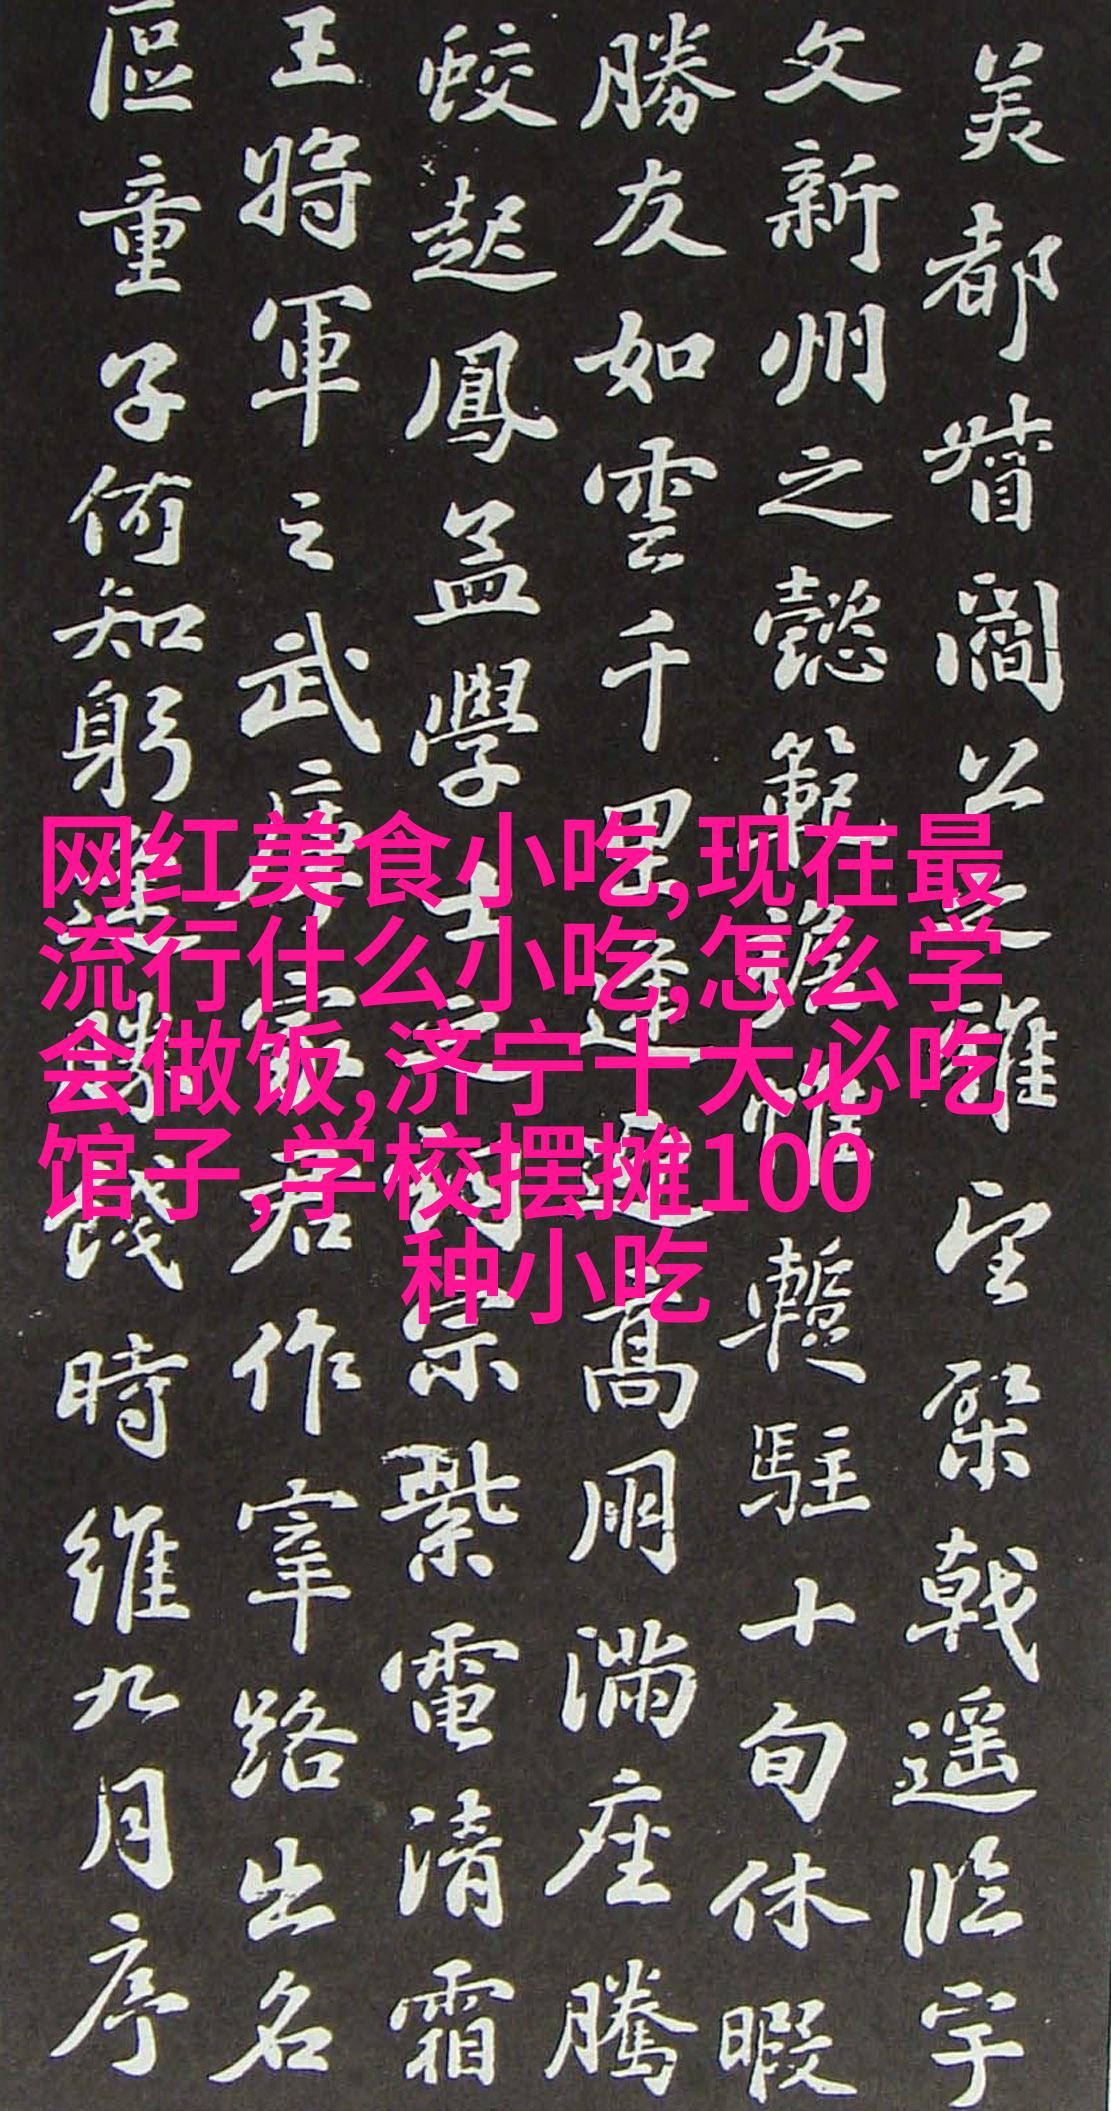 美都督閻公之雅望棨戟遥临宇
文新州之懿範襜帷暫駐十旬休暇
勝友如雲千里逢迎高朋滿座騰
蛟起鳳孟學士之詞宗紫電清霜
王將軍之武庫家君作宰路出名
區童子何知躬逢勝餞時維九月序
网红美食小吃,现在最
流行什么小吃,怎么学
会做饭,济宁十大必吃
馆子,学校摆摊100
种小吃